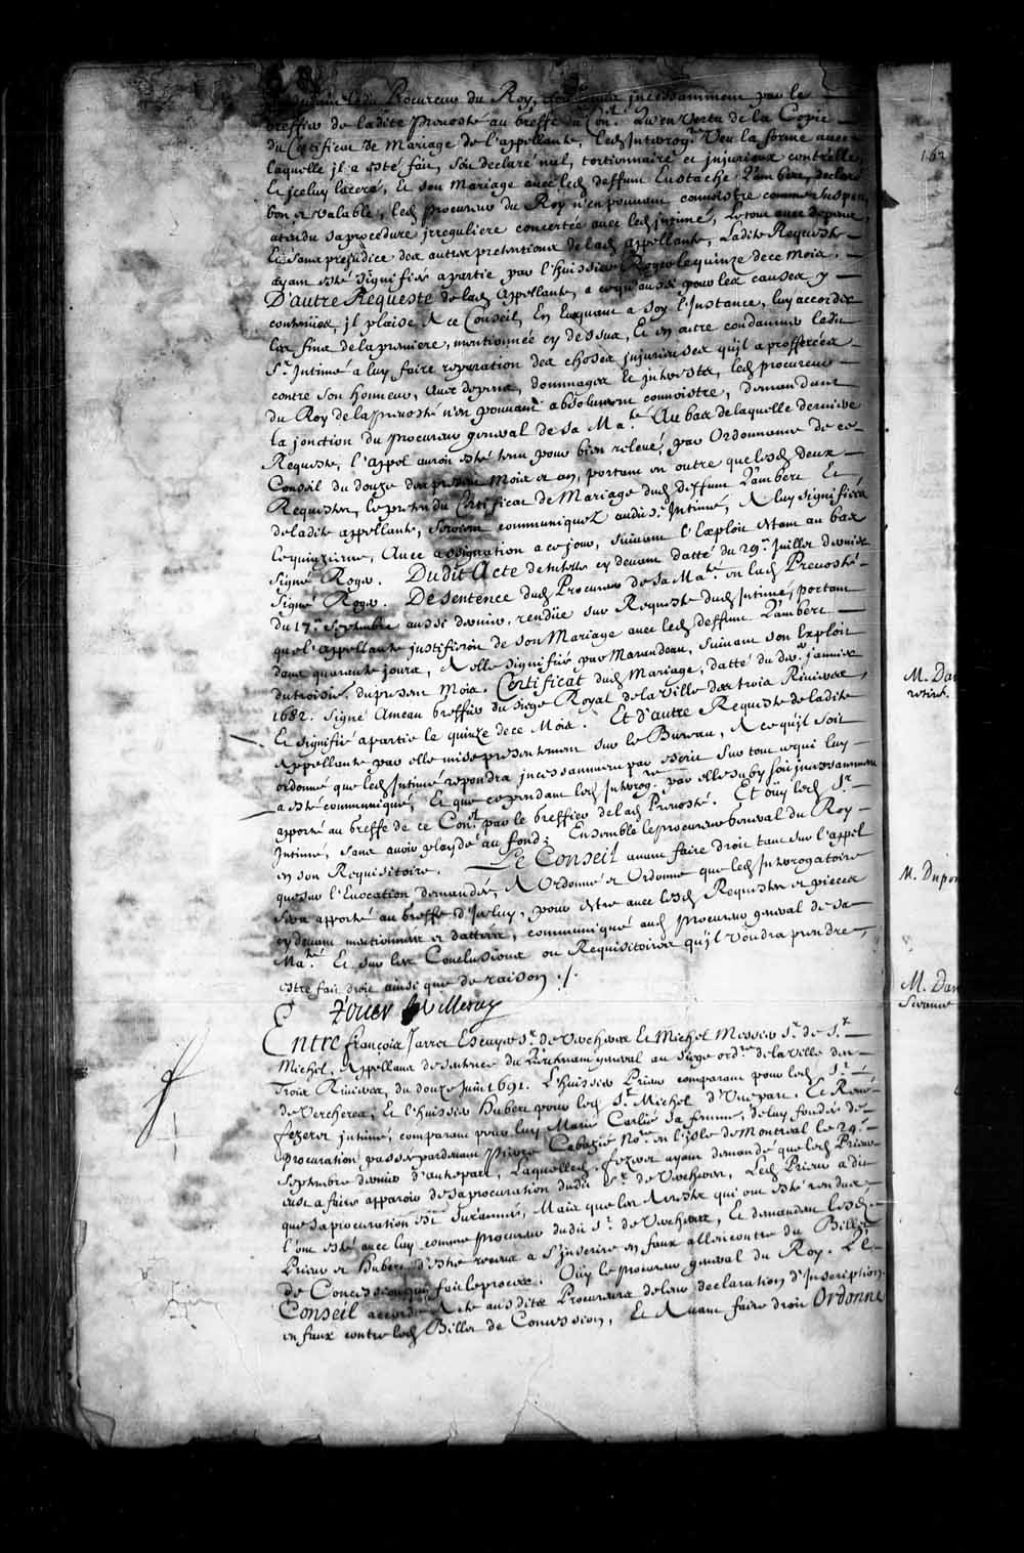 Procureur du Roy, incessamment par le
greffier de ladite prevosté au greffe du Con.el Qu'en vertu de la Copie
du Certificat de Mariage de l'appellante, led. Interrog.re Veu la forme avec
laquelle jl a esté fait, soit declaré nul, tortionnaire et injurieux contr'elle,
Et jceluy laceré, Et son Mariage avec led. deffunt Eustache Lambert, declaré
bon et valable, led. procureur du Roy n'en pouvant connoistre comme suspect,
attendu sa procedure jrreguliere concertée avec led. jntimé, Le tout avec depens,
Et sans prejudice des autres pretentions de lad. appellante, Ladite Requeste
ayant esté signifiée a partie par l'huissier Roger le quinze de ce mois.
D'autre Requeste de lad. Appellante, a ce qu'aussi pour les causes y
contenües, jl plaise A ce Conseil, En Evoquant a soy l'Instance, luy accorder
les fins de la premiere, mentionnée cy dessus, Et en outre condamner ledit
S.r Intimé a luy faire reparation des choses injurieuses qu'il a profferées
contre son honneur, avec depens, dommages et jnterests, led. procureur
du Roy de la prevosté n'en pouvant absolument connoistre, demandant
la jonction du procureur general de sa Ma.té Au bas de laquelle derniere
Requeste, l'appel auroit esté tenu pour bien relevé, par Ordonnance de ce
Conseil du douze des presens Mois et an, portant en outre que lesd. deux
Requestes, le pretendu Certificat de Mariage dud. deffunt Lambert Et
de ladite appellante, seroient communiquez audit S.r Intimé, A luy signifiées
le quinzieme, Avec assignation a ce jour, suivant l'Exploit estant au bas
signé Roger. Dudit Acte de tutelle cy devant datté du 29.e Juillet dernier
Signé Roger. De sentence dud. Procureur de Sa Ma.té en lad. Prevosté
du 17.e Septembre aussi dernier, rendüe sur Requeste dud. Intimé, portant
que l'appellante justifiroit de son Mariage avec led. deffunt Lambert
dans quarante jours, A elle signifiée par Marandeau, suivant son Exploit
du troisie. du present Mois. Certificat dud. Mariage, datté du dix.e janvier
1682. Signé Ameau greffier du siege Royal de la Ville des trois Rivieres,
Et signifié a partie le quinze de ce Mois. Et d'autre Requeste de ladite
Appellante par elle mise presentement sur le Bureau, A ce qu'il soit
ordonné que led. Intimé repondra incessamment par escrit sur tout ce qui luy
a esté communiqué, Et que cependant led. Interrog.re par elle suby soit incessamment
apporté au greffe de ce Con.el par le greffier de lad. Prevosté. Et oüy led. S.r
Intimé, sans avoir playdé au fond; Ensemble le procureur general du Roy
en son Requisitoire. Le Conseil avant faire droit tant sur l'appel
que sur l'Evocation demandée, A Ordonné et Ordonne que led. Interrogatoire
sera apporté au greffe d'Iceluy, pour estre avec lesd. Requestes et pieces
cy devant mentionnées et dattées, communiqué aud. procureur general de Sa
Ma.té Et sur les Conclusions ou Requisitoires qu'jl voudra prendre,
estre fait droit ainsi que de raison ./.
Roüer de Villeray
Entre françois Jarret Escuyer S.r de Vercheres Et Michel Messier S.r de S.t
Michel, Appellans de sentence du Lieutenant general au Siege ord.re de la Ville des
Trois Rivieres, du douze Juin 1691. L'huissier Prieur comparant pour led. S.r
de Vercheres, Et l'huissier Hubert pour led. S.t Michel d'Une part. Et René
fezeret jntimé, comparant pour luy Marie Carlié sa femme, de luy fondée de
procuration passée pardevant Pierre Cabazié No.re en l'jsle de Montreal le 29.e
Septembre dernier d'autre part. Laquelle d. fezeret ayant demandé que led. Prieur
eust a faire apparoir de sa procuration dudit S.r de Vercheres, Led. Prieur a dit
que sa procuration est surannée, Mais que les Arrests qui ont esté rendus
l'ont esté avec luy comme procureur dudit S.r de Vercheres, Et demandent lesd.
Prieur et Hubert d'Estre receus a S'Inscrire en faux allencontre du Billet
de Concession qui fait le procez. Oüy le procureur general du Roy. Le
Conseil accorde Acte ausdits Procureurs de leur declaration d'Inscription
en faux contre led. Billet de Concession, Et Avant faire droit Ordonne
162
M. Du
retiré.
M. Dupon
M. Du